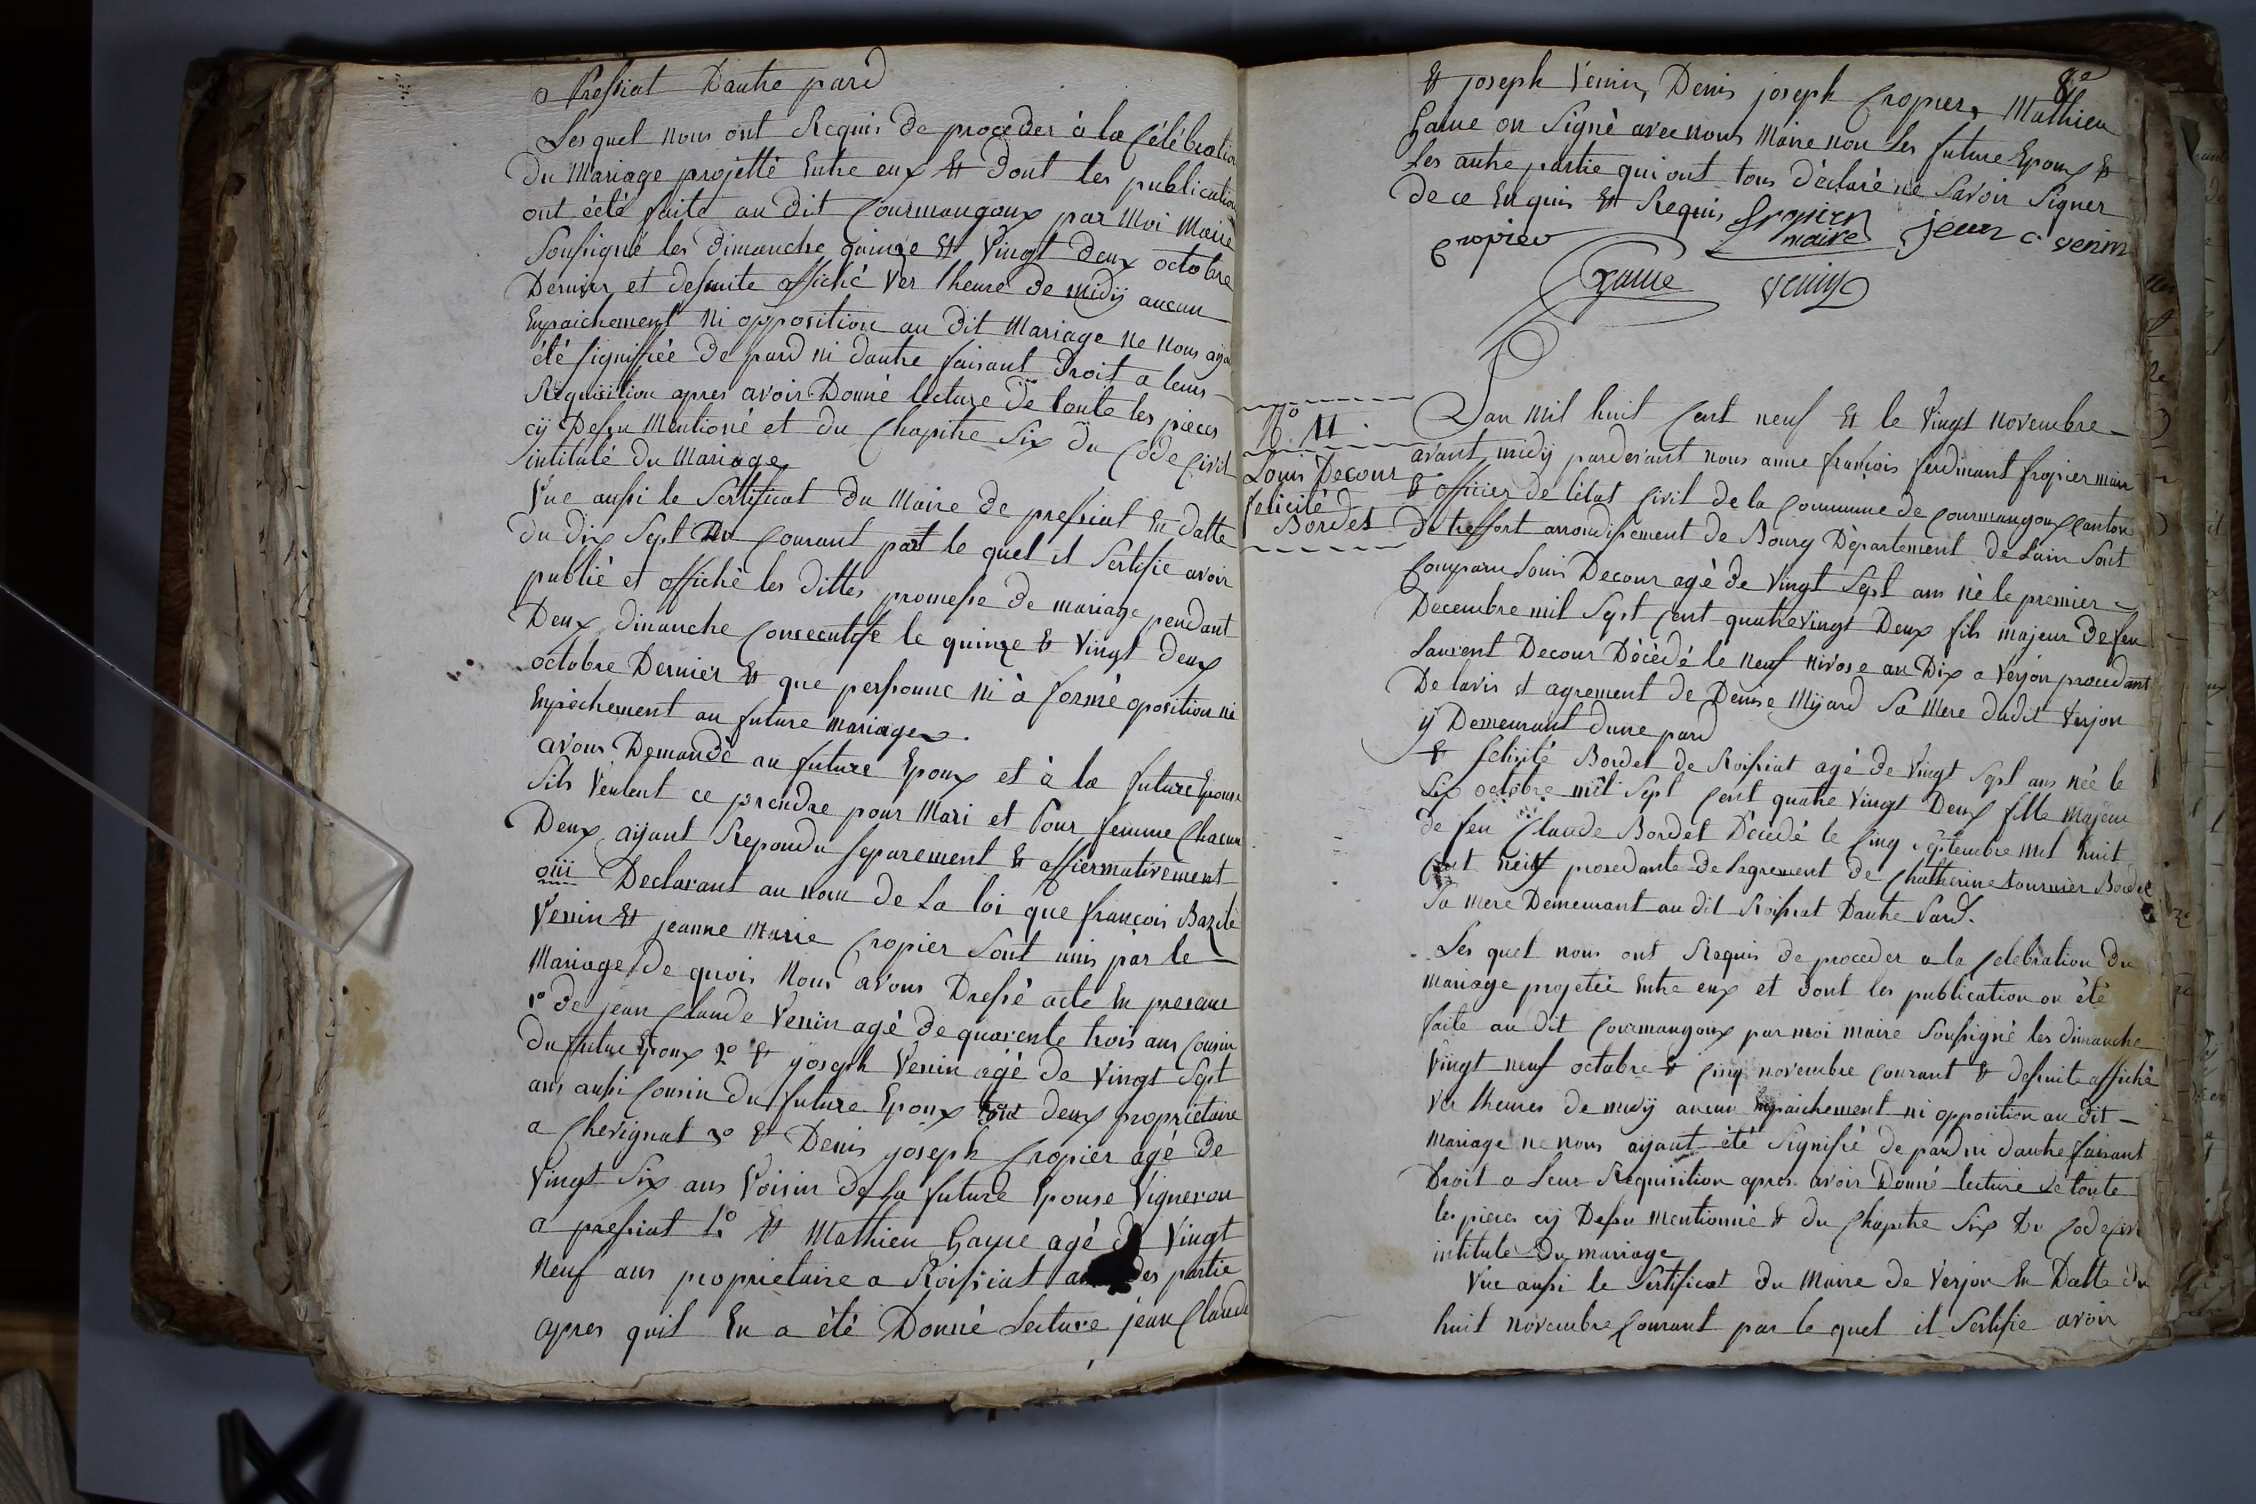 a Pressiat Dautre pard
Les quel nous ont Requis de proceder à la Célébration
du Mariage projetté Entre eux Et dont les publication
ont éété faite au dit Courmangoux par Moi Maire
Soussigné les dimanche quinze Et Vingt deux octobre
Dernier et desuite affiché Ver lheure de midÿ aucun
Enpaichement Ni opposition au dit Mariage ne nous aya
été signiffiée de pard ni dautre faisant Droit a leurs
Requisition apres avoir Donné lecture de toute les pièces
cÿ Dessu Mentioné et du Chapitre Six du Code Civil
intitulé du Mariage
Vue aussi le Sertificat du Maire de pressiat En datte
du dix Sept du Courant part le quel il Sertifie avoir
publié et affiché les dittes promesse de mariage pendant
Deux dimanche Consecutife le quinze & Vingt deux
octobre Dernier Et que perssonne Ni à formé oposition ni
Enpèchement au future mariage.
avons Demandé au future Epoux et à la future Epouse
Sils Veulent ce prendre pour Mari et Pour femme Chacun
Deux aÿant Repondu Separement Et affiermativement
oüi Declarant au nom de La loi que françois Bazile
Venin Et jeanne Marie Cropier Sont unis par le
Mariage de quois Nous avons Dressé acte En presance
1º de jean Claude Venin agé de quarente trois ans Cousin
du future Epoux 2º & yoseph Venin agé de Vingt Sept
ans aussi Cousin du future Epoux tout deux proprietaire
a Chevignat 3º & Denis yoseph Cropier agé de
Vingt Six ans Voisin de la future Epouse Vigneron
a pressiat Et Mathieu Game agé de Vingt
Neuf ans proprietaire a Roissiat des partie
apres quil En a été Donné Lecture jean Claude
8e
& joseph Venin, Denis joseph Cropier, Mathieu
Game on Signè avec nous Maire non les future Epoux &
Les autre partie qui ont tous déclaré ne Savoir Signer
de ce Enquis Et Requis Cropier maire jean c venin
cropier
Game venin
No. 11.
Louis Decour
felicité
Bordet
Lan Mil huit Cent neuf Et le Vingt Novembre
avant midÿ pardevant nous anne françois ferdinant Cropier maire
& officier de létat Civil de la Commune de Courmangoux Canton
de treffort arrondissement de Bourg Département de Lain Sont
Comparu Louis Decour agè de Vingt Sept ans né le premier
Decembre mil Sept Cent quatre Vingt Deux fils majeur de feu
Laurent Decour Dècèdé le Neuf Nivose an Dix a Verjon procedant
De lavis et agrement de Denise Mÿard Sa Mere dudit Verjon
ÿ Demeurant dune pard
& félicité Bordet de Roissiat agé de Vingt Sept ans née le
Six octobre mil Sept Cent quatre Vingt Deux fille Majeur
de feu Claude Bordet Décédé le Cinq Septembre mil huit
Cent neuf procedante de Lagrement de Chatherine tournier Bordet
Sa Mere Demeurant au dit Roissiat Dautre Pard.
Les quel nous ont Requis de proceder a la Celebration du
Mariage projetée Entre eux et dont les publication on été
faite au dit Courmangoux par moi maire Soussigné les dimanche
Vingt neuf octobre & Cinq novembre Courant & desuite affiché
Ver lheures de midÿ aucun Enpaichement ni opposition au dit
Mariage ne nous aÿant été Signifié de pard ni dautre faisant
Droit a Leur Requisition apres avoir Donné lecture de toute
les pieces cÿ Dessu Mentionné & du Chapitre Six du Code
intitule Du mariage
Vue aussi le Sertificat du Maire de Verjon En Datte du
huit novembre Courant par le quel il Sertifie avoir